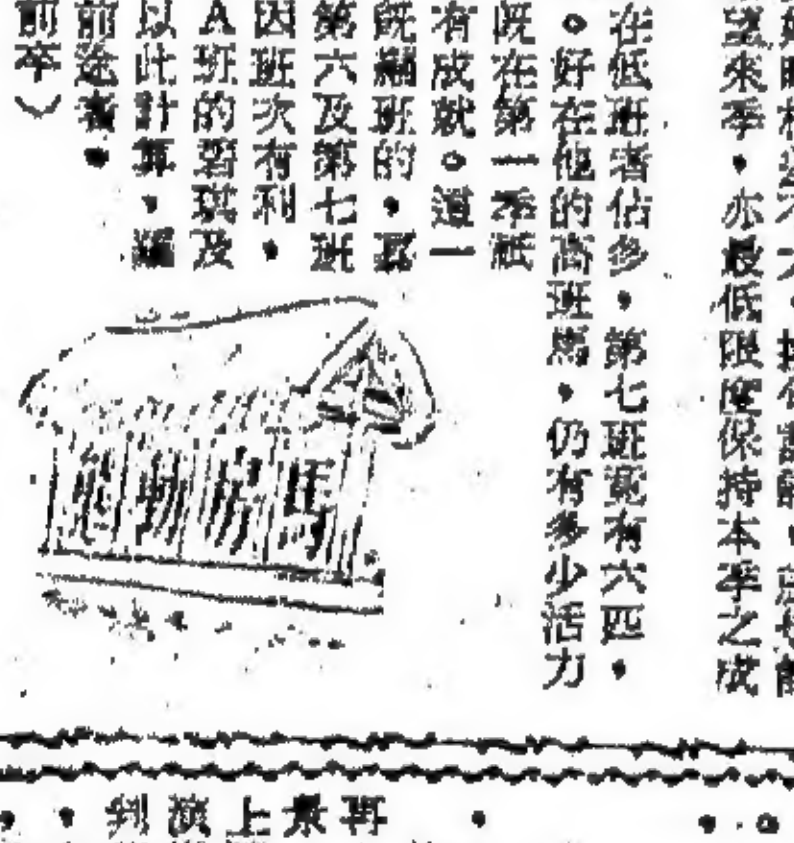 望來季・亦最低限度保持本季之成
在低班者佔多・第七班竟有六匹・
。好在他的高班馬・仍有多少活力
既在第一季祇
有成就。這一
既編班的・
第六及第七班
因班次有利・
A班的碧琪及
以此計算・
前途者・
前卒）
馬房動態
再景上演到